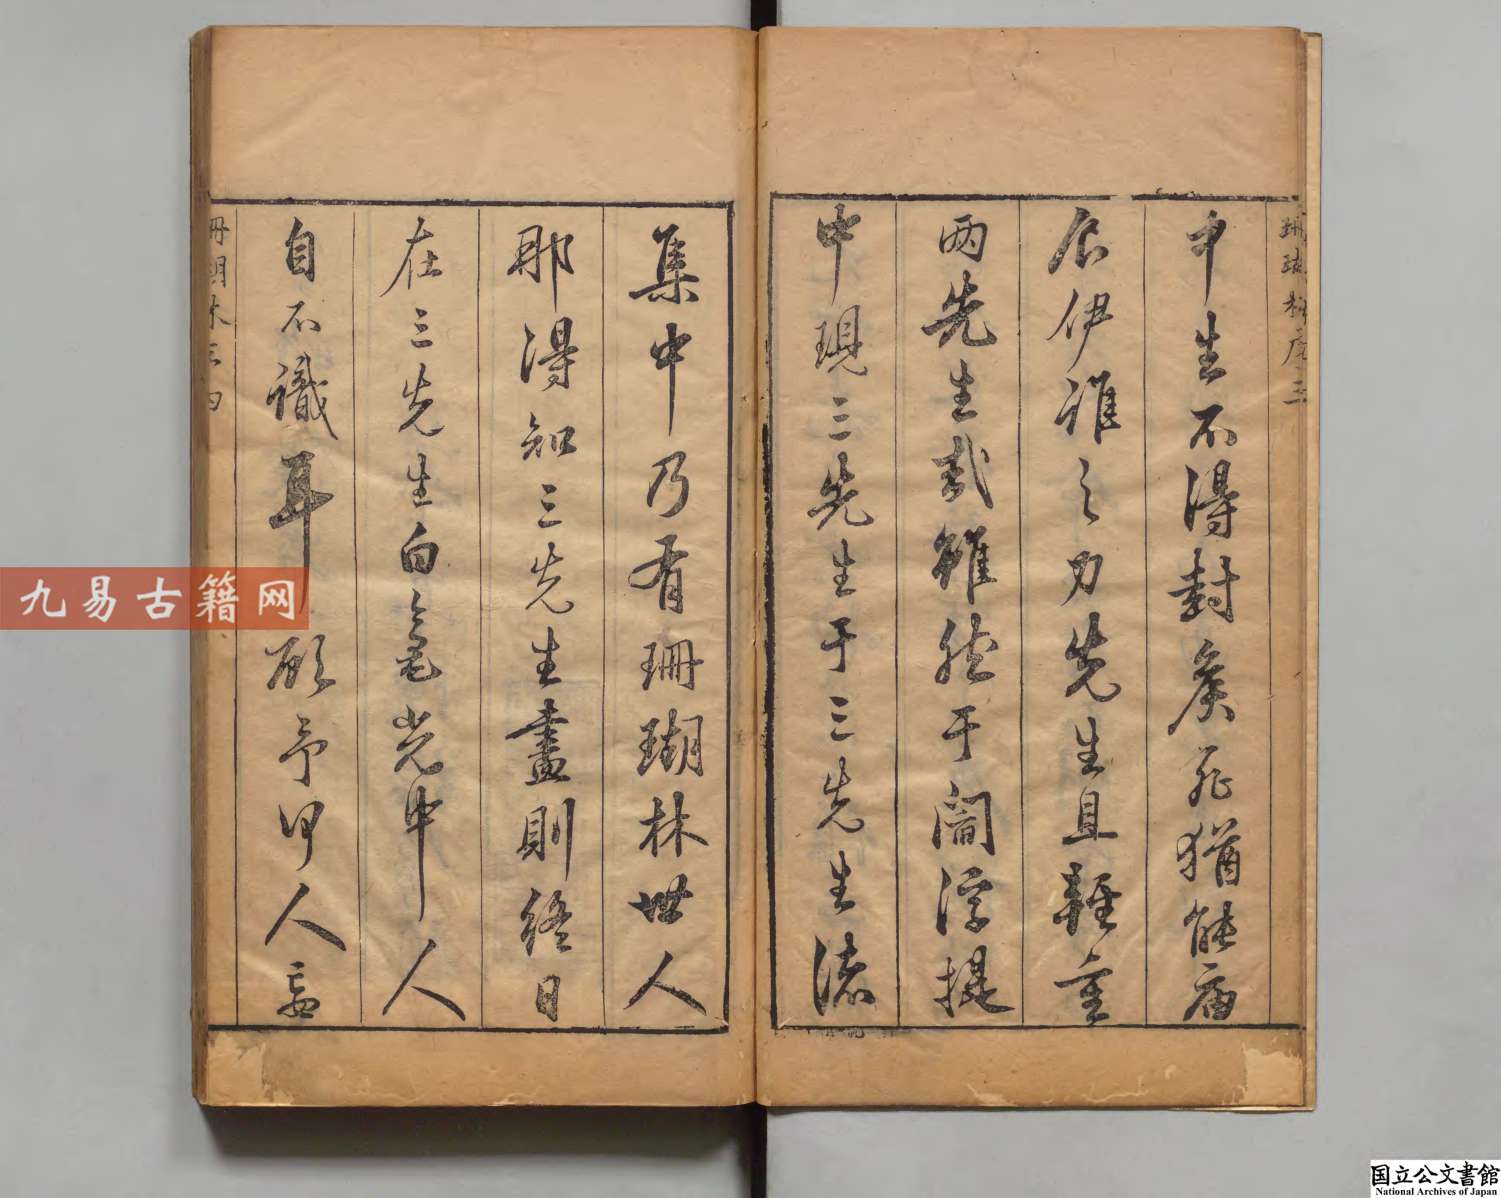 珊瑚林序三
中生不得封矦死猶能廟
食伊誰之力先生且輕重
兩先生哉雖然于閻浮提
中現三先生于三先生諸
集中乃有珊瑚林世人
那得知三先生盡則終日
在三先生白毫光中人
自不識耳顧予何人
珊瑚林
九易古籍网
国立公文書館
National Archives of Japan